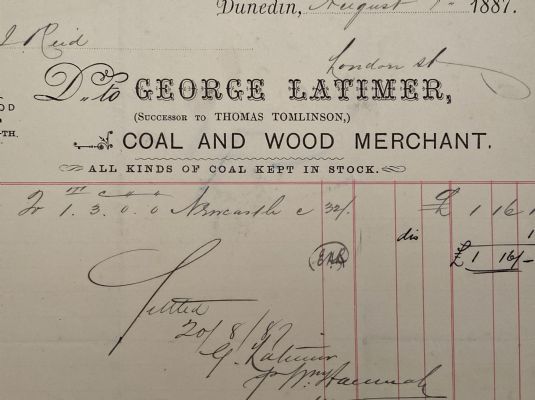 Dunedin, August 8 1887.
J Reid
London St
Dr. to GEORGE LATIMER,
(SUCCESSOR TO THOMAS TOMLINSON,)
COAL AND WOOD MERCHANT.
ALL KINDS OF COAL KEPT IN STOCK.
T C
To 1. 3. 0. 0 Newcastle @ 32/. £ 1 16 1
dis 1
£1 16/-
Settled
20/8/87
G. Latimer